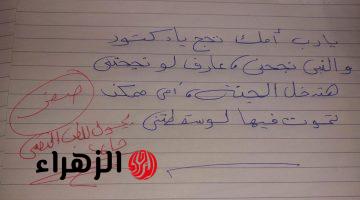 يارب أمك تحج يا دكتور
والنبي نجحني، عارف لو نجحتني
هتدخل الجنة، أمي ممكن
تموت فيها لو سقطتني
صفر
يحول للطب النفسي
الزهراء